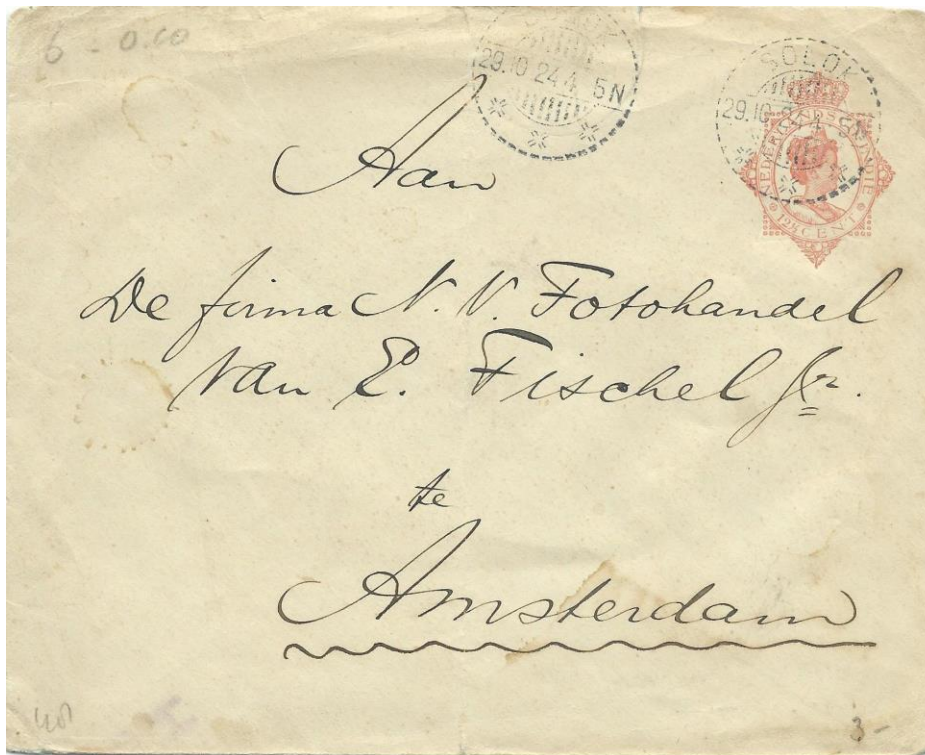 6 - 0.60
SOLOK
29.10 24.4 5N
SOLOK
29.10 24.4 5N
NEDERLANDSCH-INDIË
12½ CENT
Aan
De firma N. V. Fotohandel
van E. Fischel Jr.
te
Amsterdam
3-